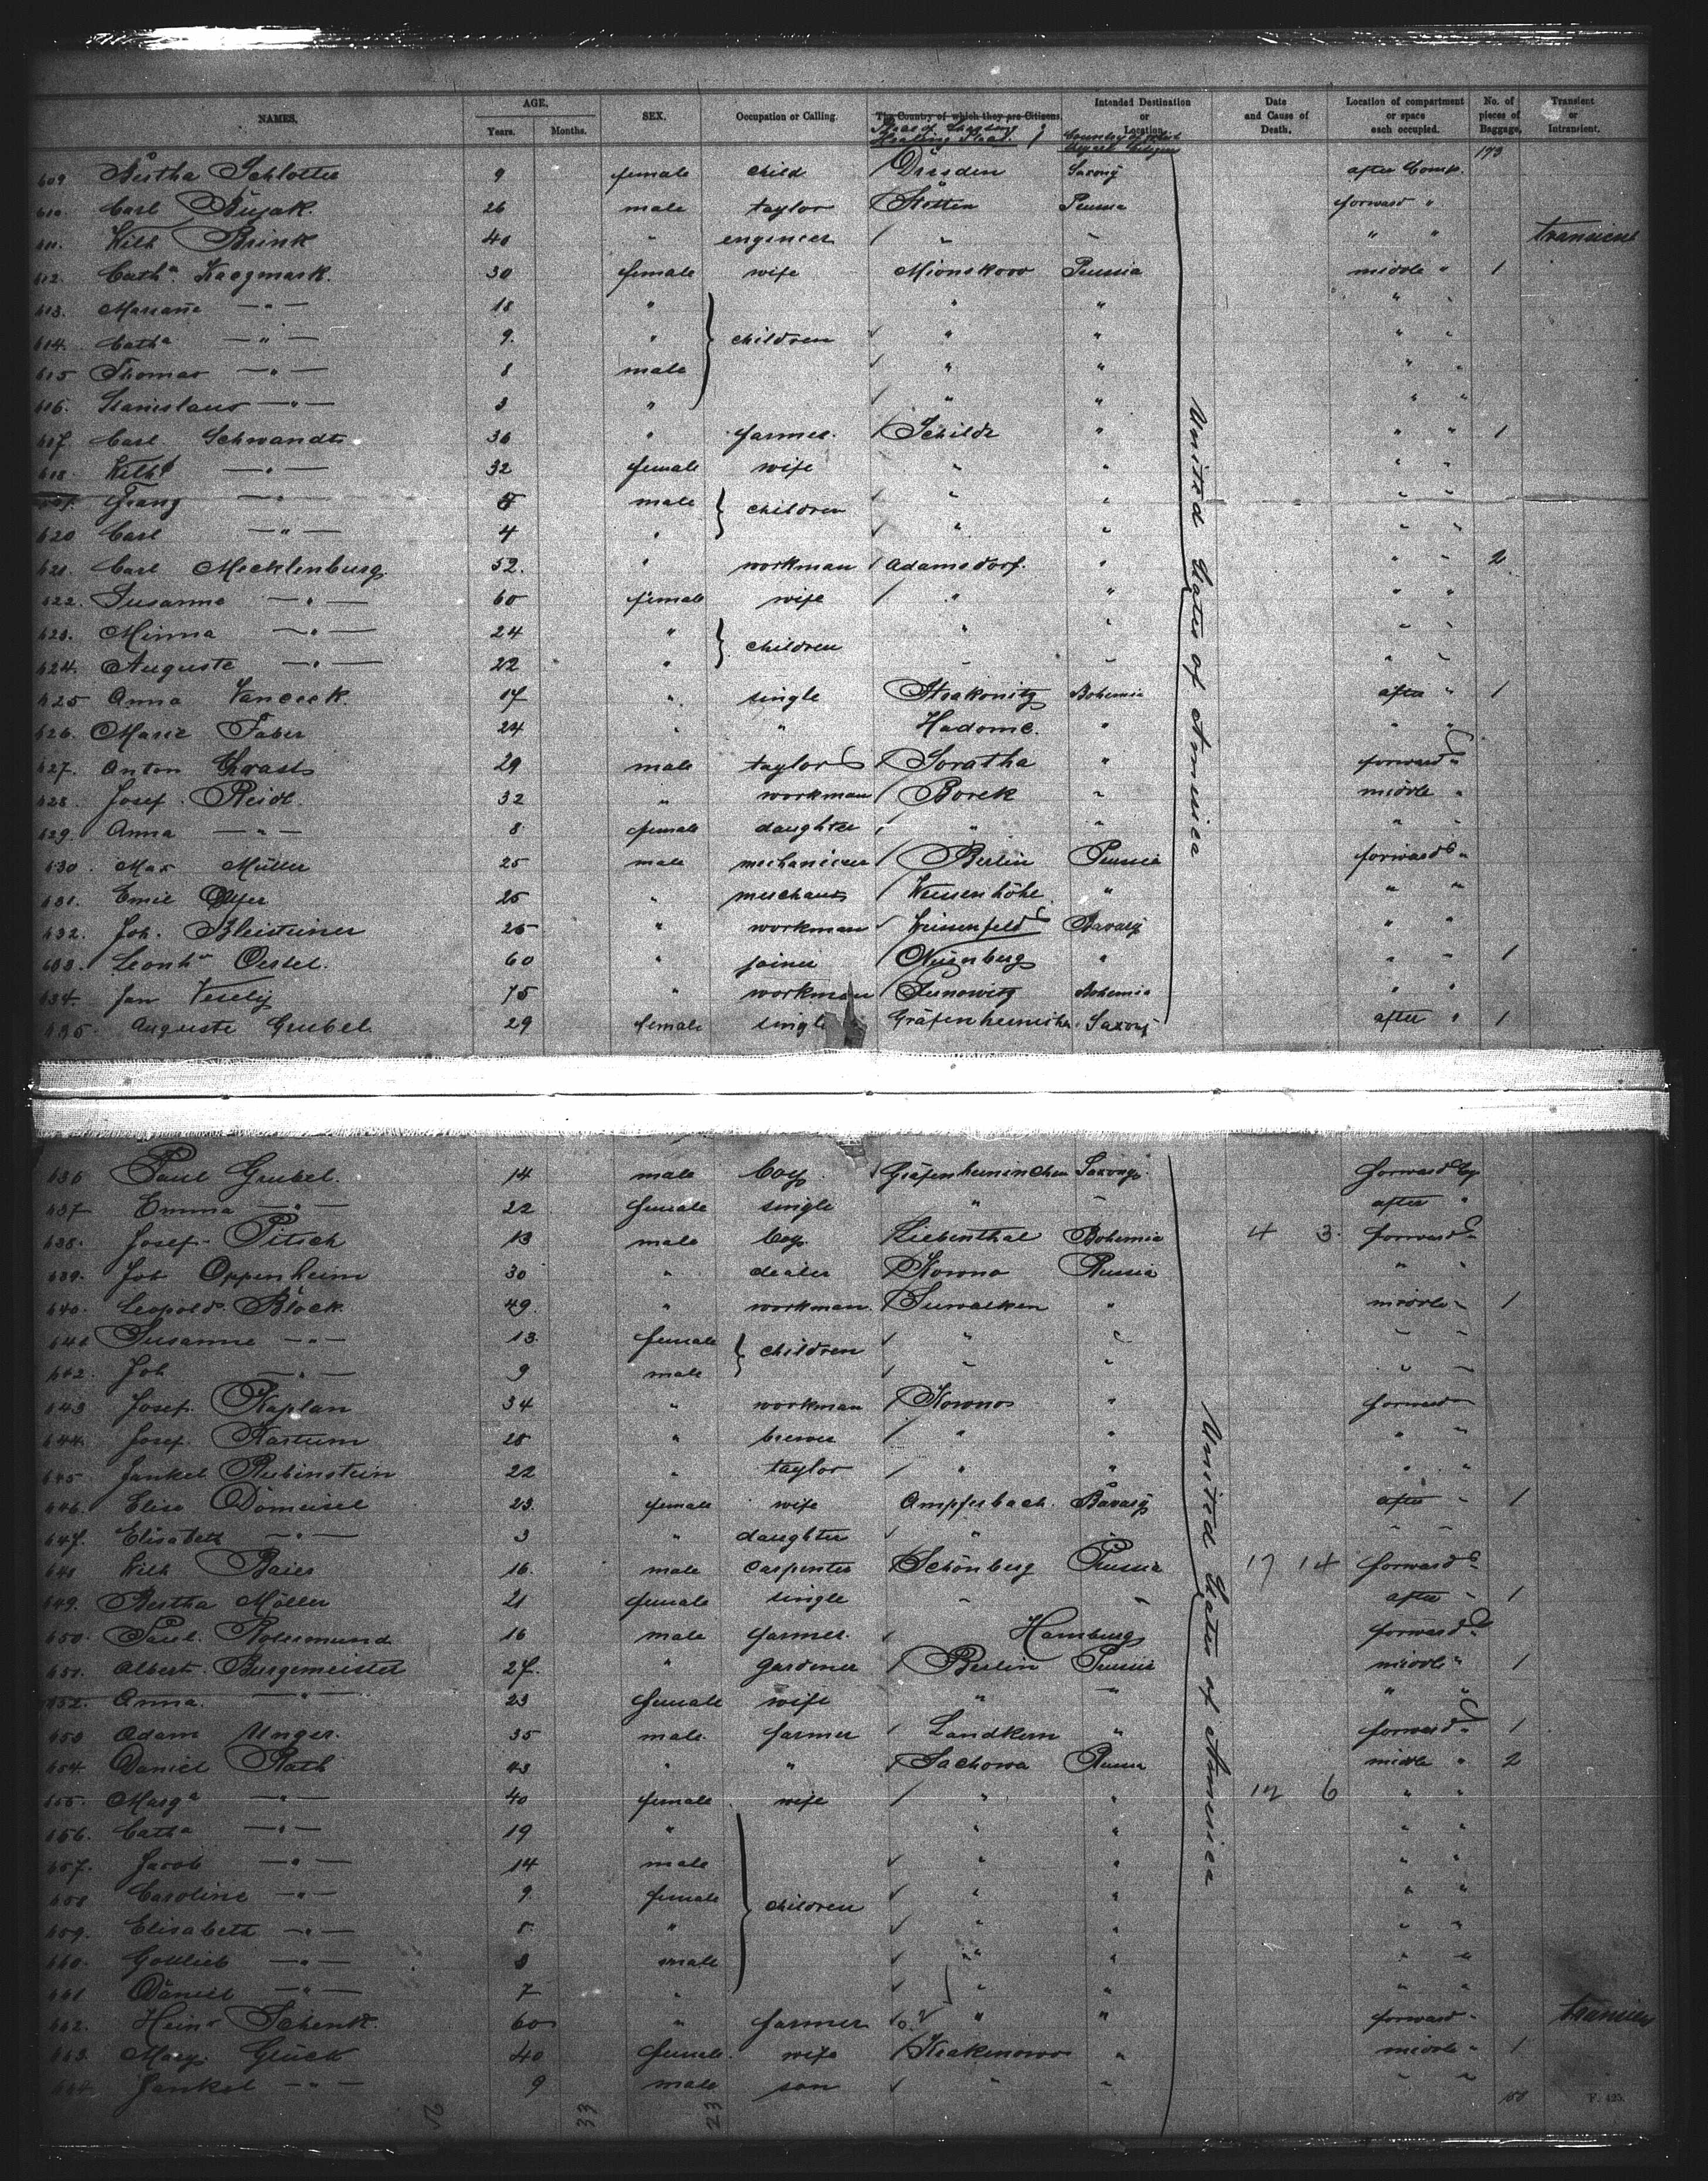 NAMES. AGE. Years. Months. SEX. Occupation or Calling. The Country of which they are Citizens. Intended Destination or Location. Date and Cause of Death. Location of compartment or space each occupied. No. of pieces of Baggage. Transient or Intransient.
173
609 Bertha Schlotter 9 female child Dresden Saxony after Comp.
610 Carl Bujak. 26 male taylor Stettin Prussia forward "
611. Wilh Brink 40 " engineer " " " " transient
612. Cath^a. Kaczmark. 30 female wife Mionskow Prussia middle " 1
613. Mariane —"— 18 " " " " "
614. Cath^a —"— 9. " children " " " "
615 Thomas —"— 8 male " " " "
616. Stanislaus —"— 3 " " " " "
617. Carl Schwandt 36 " farmer. Schildt " " " 1
618. Wilh^e —"— 32 female wife " " " "
619. Franz —"— male children " " " "
620 Carl —"— 4 " " " " "
621. Carl Mecklenburg. 52. " workman Adamsdorf. " " " 2
622. Susanna —"— 60 female wife " " " "
623. Minna —"— 24 " children " " " "
624. Auguste —"— 22 " " " " "
625 Anna 17 " single Strakonitz Bohemia after " 1
626. Marie Faber 24 " " " " "
627. Anton 29 male taylor Soratha " forward "
628. Josef Reidl. 32 " workman Borek " middle "
629. Anna —"— 8 female daughter " " " "
630. Max Müller 25 male Berlin Prussia forward "
631. Emil 25 " merchant Weisenhöhe " " "
632. Joh. Bleisteiner 25 " workman Bavary " "
633. Leonh^d Oertel. 60 " joiner Nürnberg " " " 1
634. Jan Vesely 75 " workman Bohemia " "
635. Auguste Grubel. 29 female single Saxony after " 1
636 Paul Grubel. 14 male boy Saxony forward Cp
637 Emma —"— 22 female single " " after "
638. Josef Pitsch 13 male boy. Liebenthal Bohemia 4 3. forward "
639. Job Oppenheim 30 " dealer Kowno Russia " "
640. Leopold Block 49. " workman. Suwalken " middle " 1
641 Susanne —"— 13. female children " " " "
642. Job —"— 9 male " " " "
643 Josef Kaplan 34 " workman Kowno " forward "
644. Josef Kartum 28 " brewer " " " "
645 Jankel Rubinstein 22 " taylor " " " "
646. Elise Dömeisel 23. female wife Ampferbach. Bavary after " 1
647. Elisabeth —"— 3 " daughter " " " "
648 Wilh Baier 16. male carpenter Schönberg Prussia 17 14 forward "
649. Bertha Möller 21 female single " " after " 1
650. Paul 16 male farmer. Hamburg forward "
651. Albert Burgemeister 27. " gardener Berlin Prussia middle " 1
652. Anna. —"— 23 female wife " " " "
653 Adam Unger. 35 male. farmer Landkern " forward " 1
654. Daniel Rath 43 " " Sachowa Russia middle " 2
655. Marg^a —"— 40 female wife " " 12 6 " "
656. Cath^a —"— 19 " " " " "
657. Jacob —"— 14 male " " " "
658 Caroline —"— 9. female children " " " "
659. Elisabeth —"— 8 " " " " "
660. Gottlieb —"— 3 male " " " "
661 Daniel —"— 7 " " " " "
662. Hein^r Schenk. 60 " farmer " " forward "
663. Mary. Glück 40 female. wife Krakenowo " middle " 1
664 Jankel —"— 9 male son " " " "
United States of America
United States of America
33 23
F. 425.